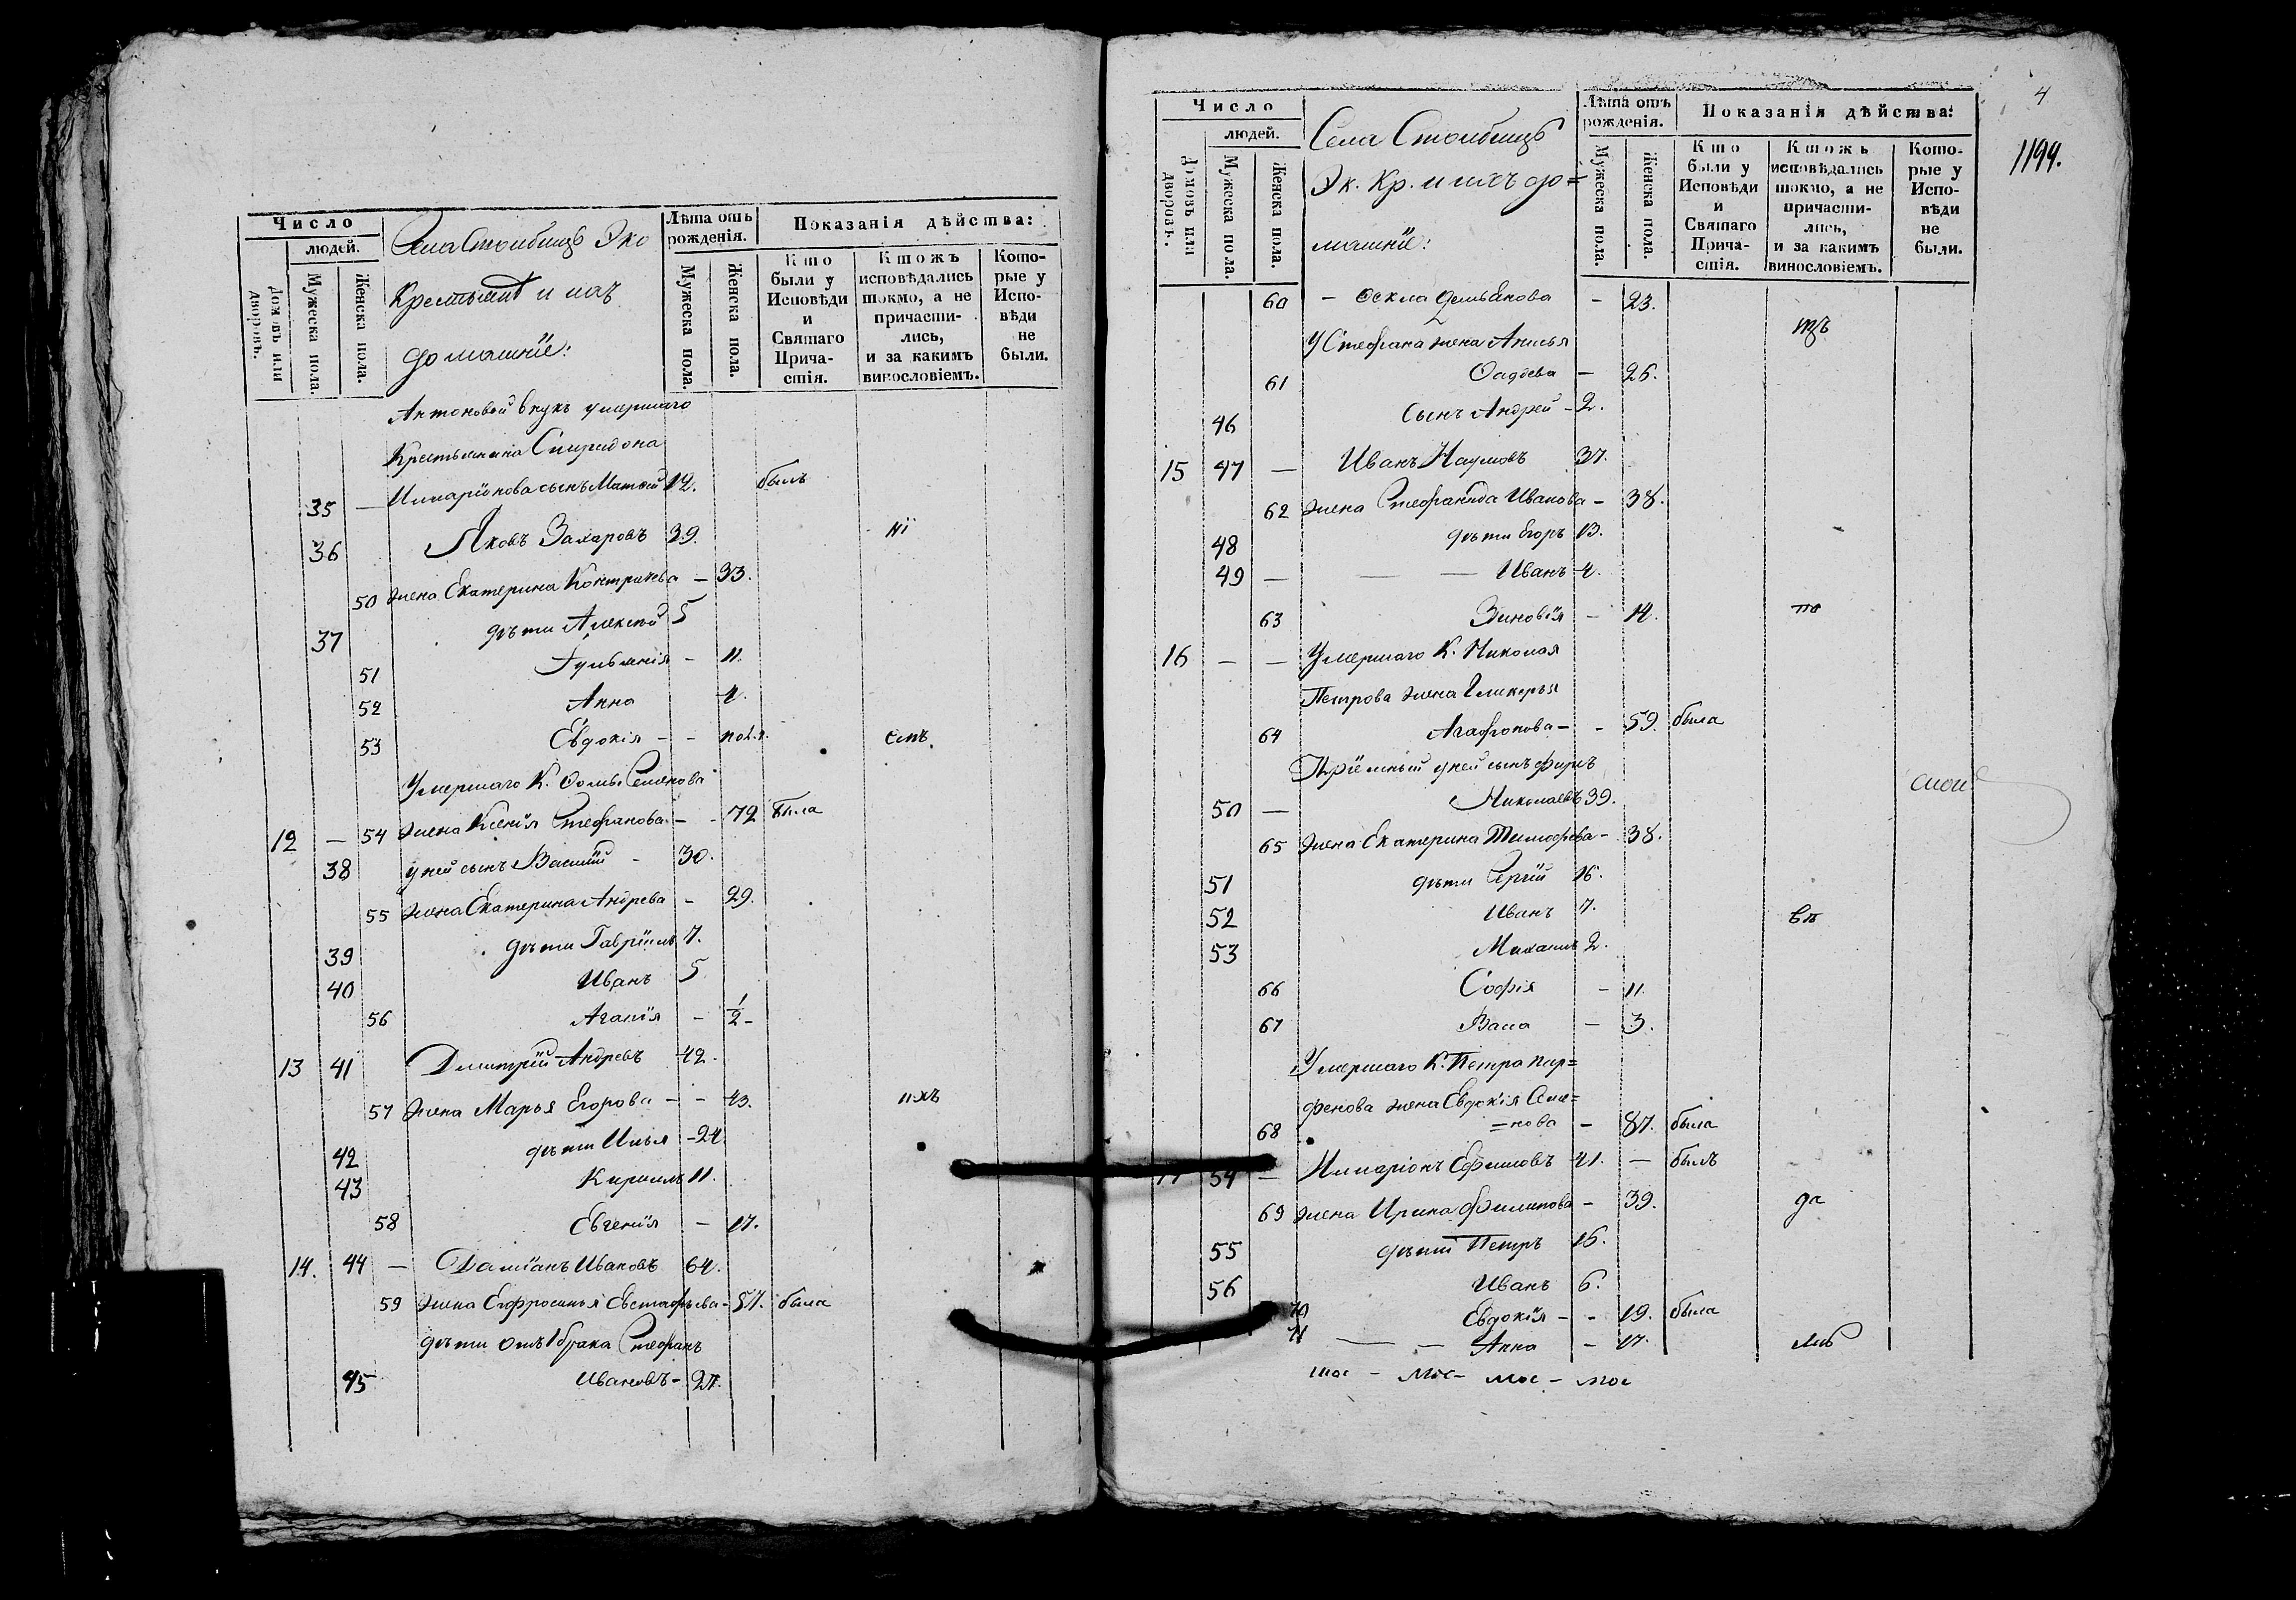 Число
людей.
Домовъ или дворовъ.
Мужеска пола.
Женска пола.
Села Столбищъ Эко
Крестьяне и ихъ
домашніе:
Лѣта отъ рожденія.
Мужеска пола.
Женска пола.
Показанія дѣйства:
Кто были у Исповѣди и Святаго Причастія.
Ктожъ исповѣдались токмо, а не причастились, и за какимъ винословіемъ.
Которые у Исповѣди не были.
Антоновой внукъ умершаго
Крестьянина Спиридона
35 — Иларіонова сынъ Матѳей 12. былъ
36 Яковъ Захаровъ 39. ні
50 жена Екатерина — 33.
37 дѣти Алексѣй 5
51 Іульянія — 11.
52 Анна 4.
53 Евдокія — — пол.г.
Умершаго К. Ѳомы Семенова
12 — 54 жена Ксенія Стефанова — — 72 была
38 у ней сынъ Василій — 30.
55 жена Екатерина Андреева — 29.
39 дѣти Гавріилъ 7.
40 Иванъ 5
56 Агапія — 1/2 —
13 41 Димитрій Андреевъ 42.
57 жена Марья Егорова — — 43. ихъ
42 дѣти Илья — 24
43 Кирилъ 11.
58 Евгенія — 17.
14. 44 — Даміанъ Ивановъ 64.
59 жена Ефросинья Евстафьева — 57. была
дѣти отъ 1 брака Стефанъ
45 Ивановъ — 27.
4
1199.
Число
людей.
Домовъ или дворовъ.
Мужеска пола.
Женска пола.
Села Столбищъ
Эк. Кр. и ихъ до=
машніе:
Лѣта отъ рожденія.
Мужеска пола.
Женска пола.
Показанія дѣйства:
Кто были у Исповѣди и Святаго Причастія.
Ктожъ исповѣдались токмо, а не причастились, и за какимъ винословіемъ.
Которые у Исповѣди не были.
60 — Ѳекла Демьянова — 23.
У Стефана жена Анисья
61 Ѳадѣева — 26.
46 сынъ Андрей — 2.
15 47 — Иванъ Наумовъ 37.
62 жена Стефанида Иванова — 38.
48 дѣти Егоръ 13.
49 — — — Иванъ 4.
63 Зиновія — 14. по
16 — — Умершаго К. Николая
Петрова жена Гликерья
64 Агафонова — — 59. была
Пріемный у ней сынъ Фирсъ
50 — Николаевъ 39.
65 жена Екатерина Тимофеева — 38.
51 дѣти Сергій 16.
52 Иванъ 7.
53 Михаилъ 2.
66 Софія — 11.
67 Васа — 3.
Умершаго К. Петра Пар=
фенова жена Евдокія Семе=
68 =нова — 87. была
17 54 — Иларіонъ Ефимовъ 41. — былъ
69 жена Ирина Филипова — 39. да
55 дѣти Петръ 16.
56 Иванъ 6.
70 Евдокія — — 19. была
71 — — Анна — 17.